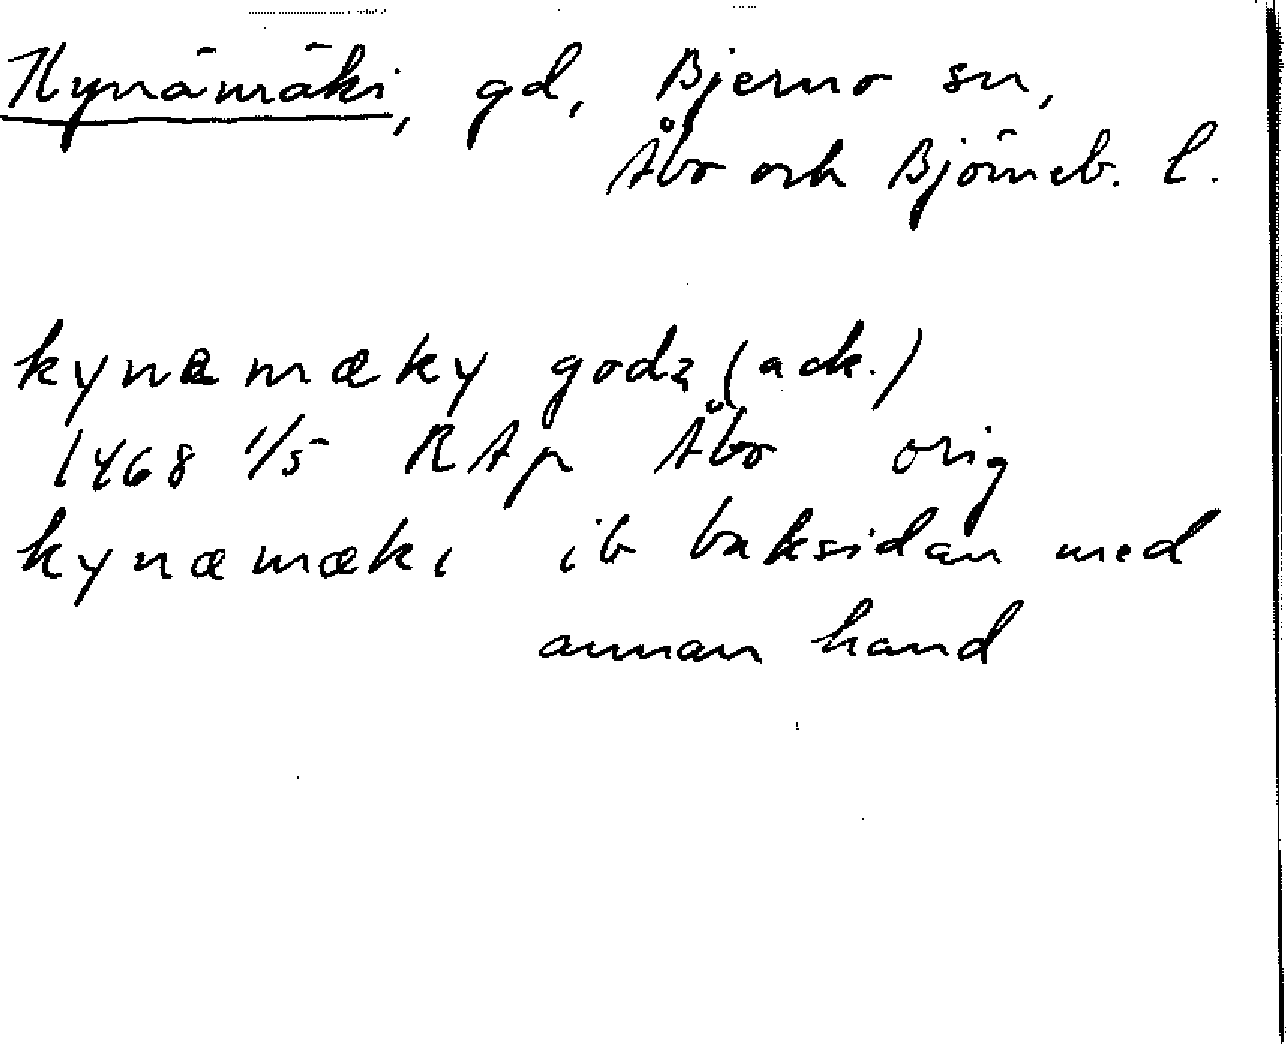 Kynämäki, gd, Bjerno sn,
Åbo och Björneb. l.
kynæmæky godz (ack.)
1468 1/5 RAp Åbo orig
kynæmæki ib baksidan med
annan hand